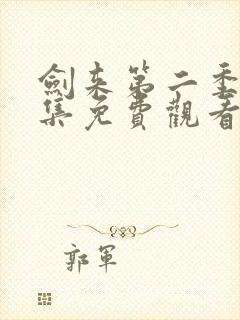 劍来第二季
集免費觀看
郭軍